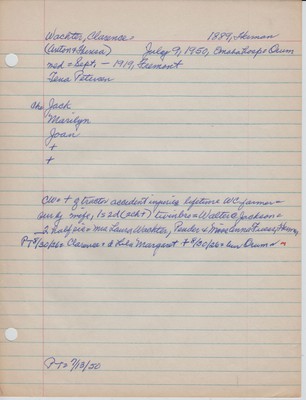 Wachter, Clarence 1889, Herman
(Anton & Theresa) July 9, 1950, Omaha hosp = Drum
md = Sept. - 1919, Fremont
Lena Petersen
chs Jack
Marilyn
Joan
+
+
CW = + of tractor accident injuries lifetime WC farmer =
sur by wife, 1s 2d (ach +) twin bro = Walter @ Jackson =
2 half sis = mrs Laura Wachter, Pender & Mrs Anna
PT 5/30/26 = Clarence = d Lila Margaret + 5/20/26 = bur Drum =
PT = 7/13/50